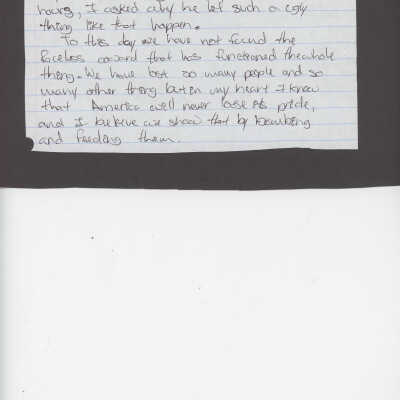 hours, I asked why he let such a ugly
thing like that happen.
To this day we have not found the
faceless coward that has functioned the whole
thing. We have lost so many people and so
many other thing but in my heart I know
that America well never lose its pride,
and I believe we show that by bombing
and feeding them.